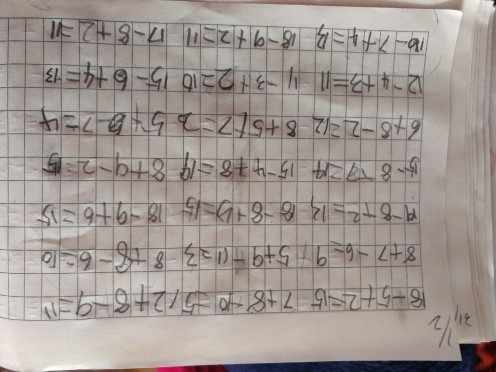 18-5+2=15 7+8-10=5 12+8-9=11
8+7-6=9 5+9-11=3 8+8-6=10
19-8+2=13 18-8+5=15 18-9+6=15
15-8+7=14 15-4+8=19 8+9-2=15
6+8-2=12 8+5+7=20 5+6-7=4
12-4+3=11 11-3+2=10 15-6+4=13
16-7+4=13 18-9+2=11 17-8+2=11